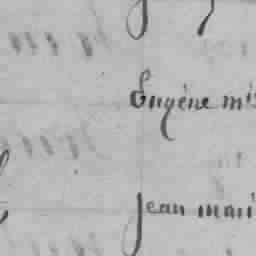 Eugène mis
jean mari